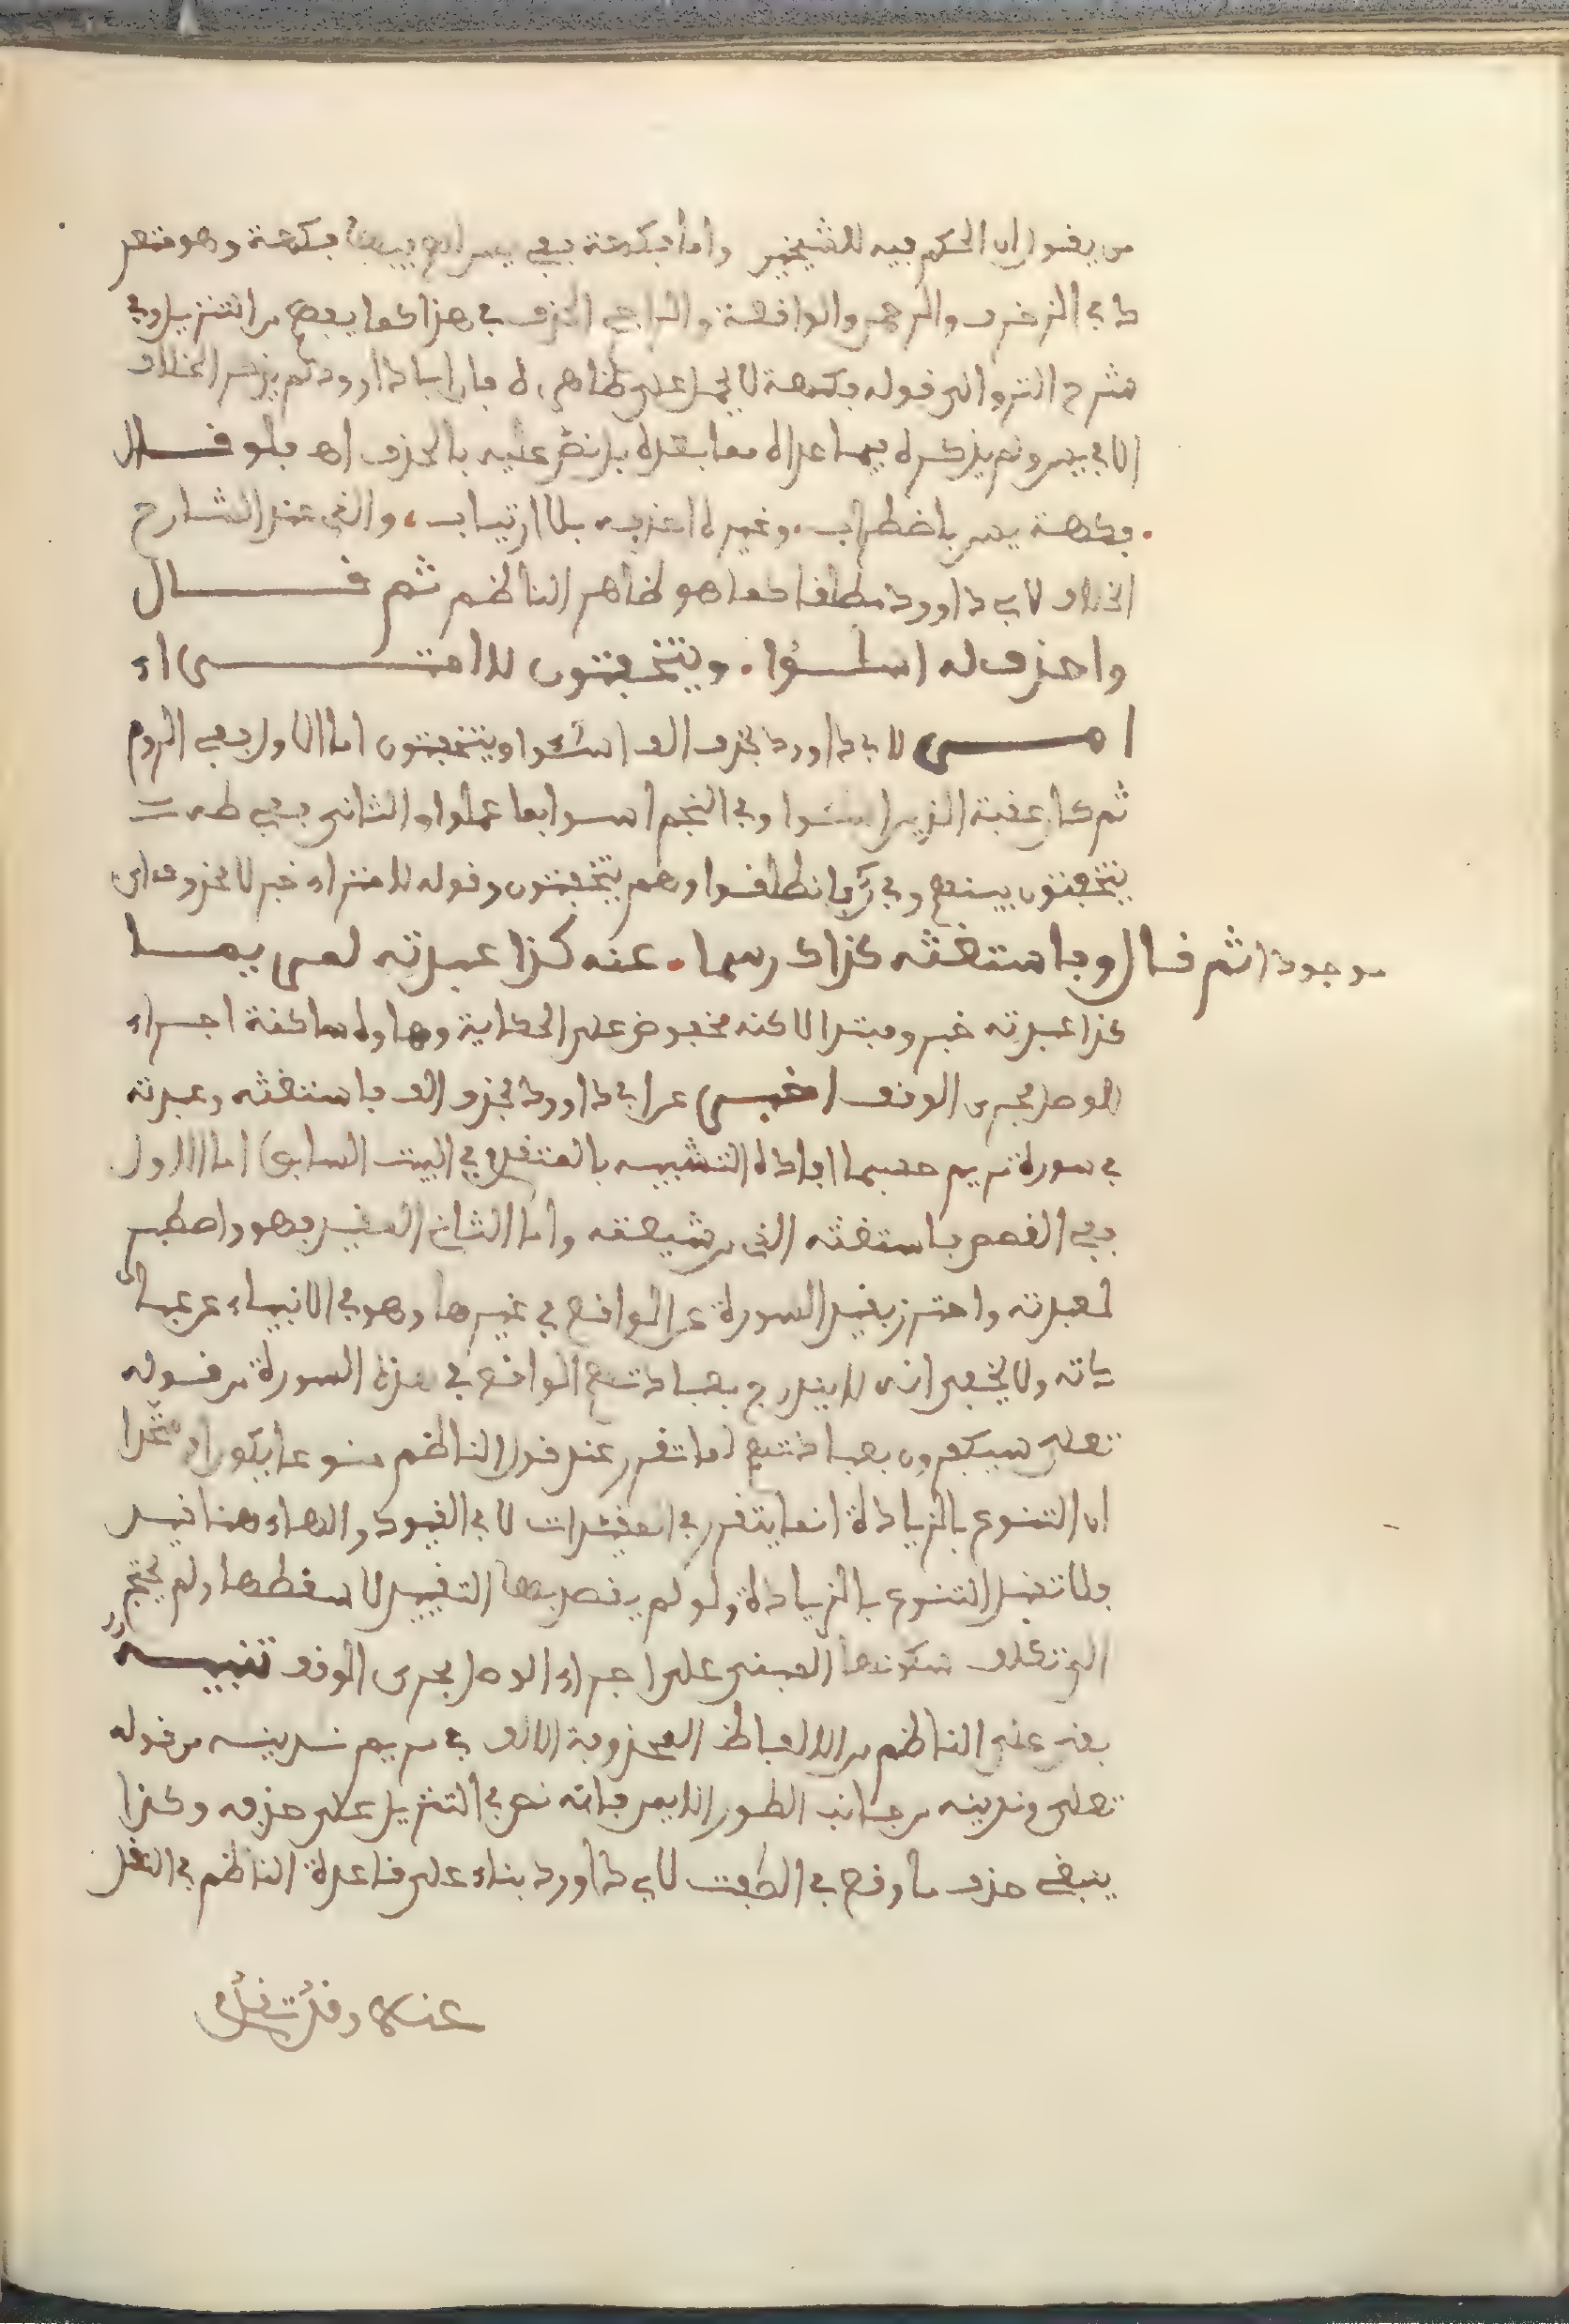 من يقول ان الحكم فيه للشيخين واما فكهة ففي يس فيها فكهة وهو متعد
د في الزخرف والرحمن والواقعة والراجح الحذف في هذا كما يفهم من التنزيل وفي
شرح التروالي قوله فكهة لا يحمل على ظاهره لان ابا داوود لم يذكر الخلاف
الا في يس ولم يذكره فيما عداه مما بعده بل نص عليه بالحذف اه فلو قال
فكهة يس باضطراب، وغيره احذف بلا ارتياب، والذي عند الشارح
الخلاف لابي داوود مطلقا كما هو ظاهر الناظم ثم قال
واحذف له اسئوا . ويتخفتون لا امتراء
امر لابي داوود بحذف الف اسئوا ويتخفتون اما الاول ففي الروم
ثم كان عقبة الذين اسئوا وفي النجم اسوا بما عملوا والثاني ففي طه
يتخفتون بينهم وفي ن فانطلقوا وهم يتخفتون وقوله لا امتراء خبر لا محذوف اي
موجود ثم قال وفاستغثه كذاك رسما . عنه كذا عبدته لمريما
كذا عبدته خبر ومبتدا لاكنه مخفوض على الحكاية وهاوه ساكنة اجراء
للوصل مجرى الوقف اخبر عن ابي داوود بحذف الف فاستغثه وعبدته
في سورة مريم حسبما افاده التشبيه بالمتقدم في البيت السابق اما الاول
ففي القصص فاستغثه الذي من شيعته واما الثاني المقيد فهو واصطبر
لعبدته واحترز بقيد السورة عن الواقع في غيرها وهو في الانبياء عن عبا
دته ولا يخفى انه لا يندرج بعبادتهم الواقع في هذه السورة من قوله
تعلى سيكفرون بعبادتهم لما تقرر عند قول الناظم منوعا يكون او متحدا
ان التنوع بالزيادة انما يتقرر في المقيدات لا في القيود والهاء هنا قيد
فلا تفيد التنوع بالزيادة ولو لم يقصد بها التقييد لاسقطها ولم يحتج
الى تكلف سكونها المبني على اجراء الوصل مجرى الوقف تنبيه
بقي على الناظم من الالفاظ المحذوفة الالف في مريم ندينه من قوله
تعلى وندينه من جانب الطور الايمن فانه نص في التنزيل على حذفه وكذا
ينبغي حذف ما وقع في الصفت لابي داوود بناء على قاعدة الناظم في النقل
عنه وقد تقدم